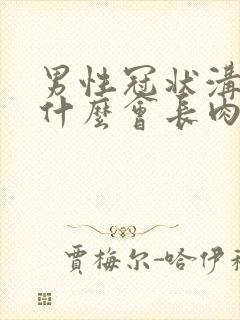 男性冠状溝
什麼會長肉
賈梅尔-哈伊